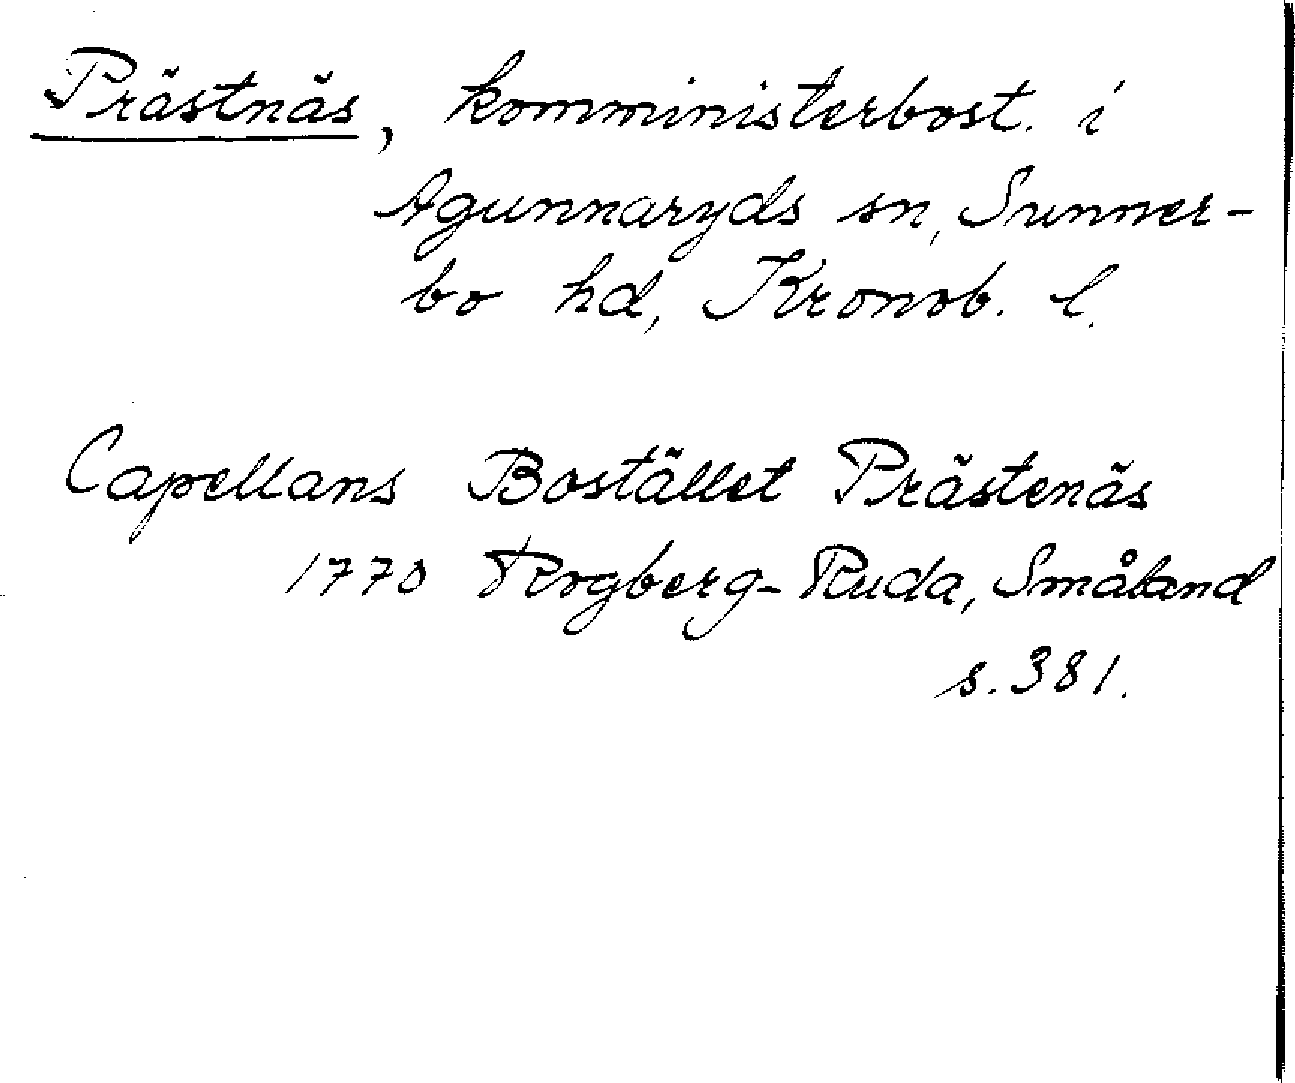 Prästnäs, komministerbost. i
Agunnaryds sn, Sunner-
bo hd, Kronob. l.
Capellans Bostället Prästenäs
1770 Rogberg-Ruda, Småland
s. 381.